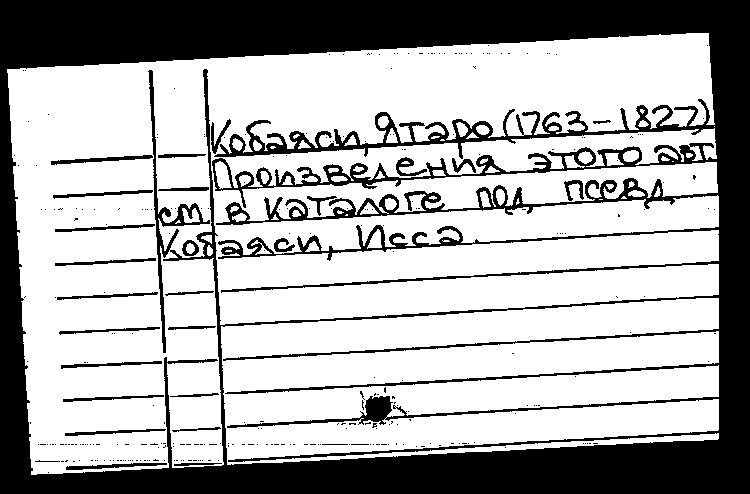 Кобаяси, Ятаро (1763-1827)
Произведения этого авт.
см. в каталоге под псевд.
Кобаяси, Исса.